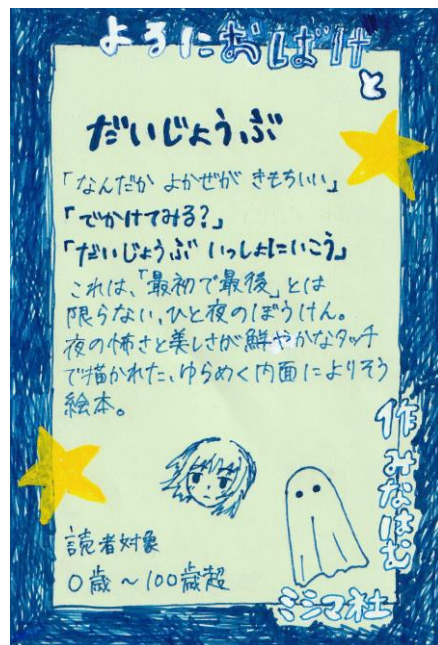 よるにおばけ
と
だいじょうぶ
「なんだか よかぜが きもちいい」
「でかけてみる?」
「だいじょうぶ いっしょにいこう」
これは、「最初で最後」とは
限らない、ひと夜のぼうけん。
夜の怖さと美しさが鮮やかなタッチ
で描かれた、ゆらめく内面によりそう
絵本。
作 みなはむ
ミシマ社
読者対象
0歳～100歳超